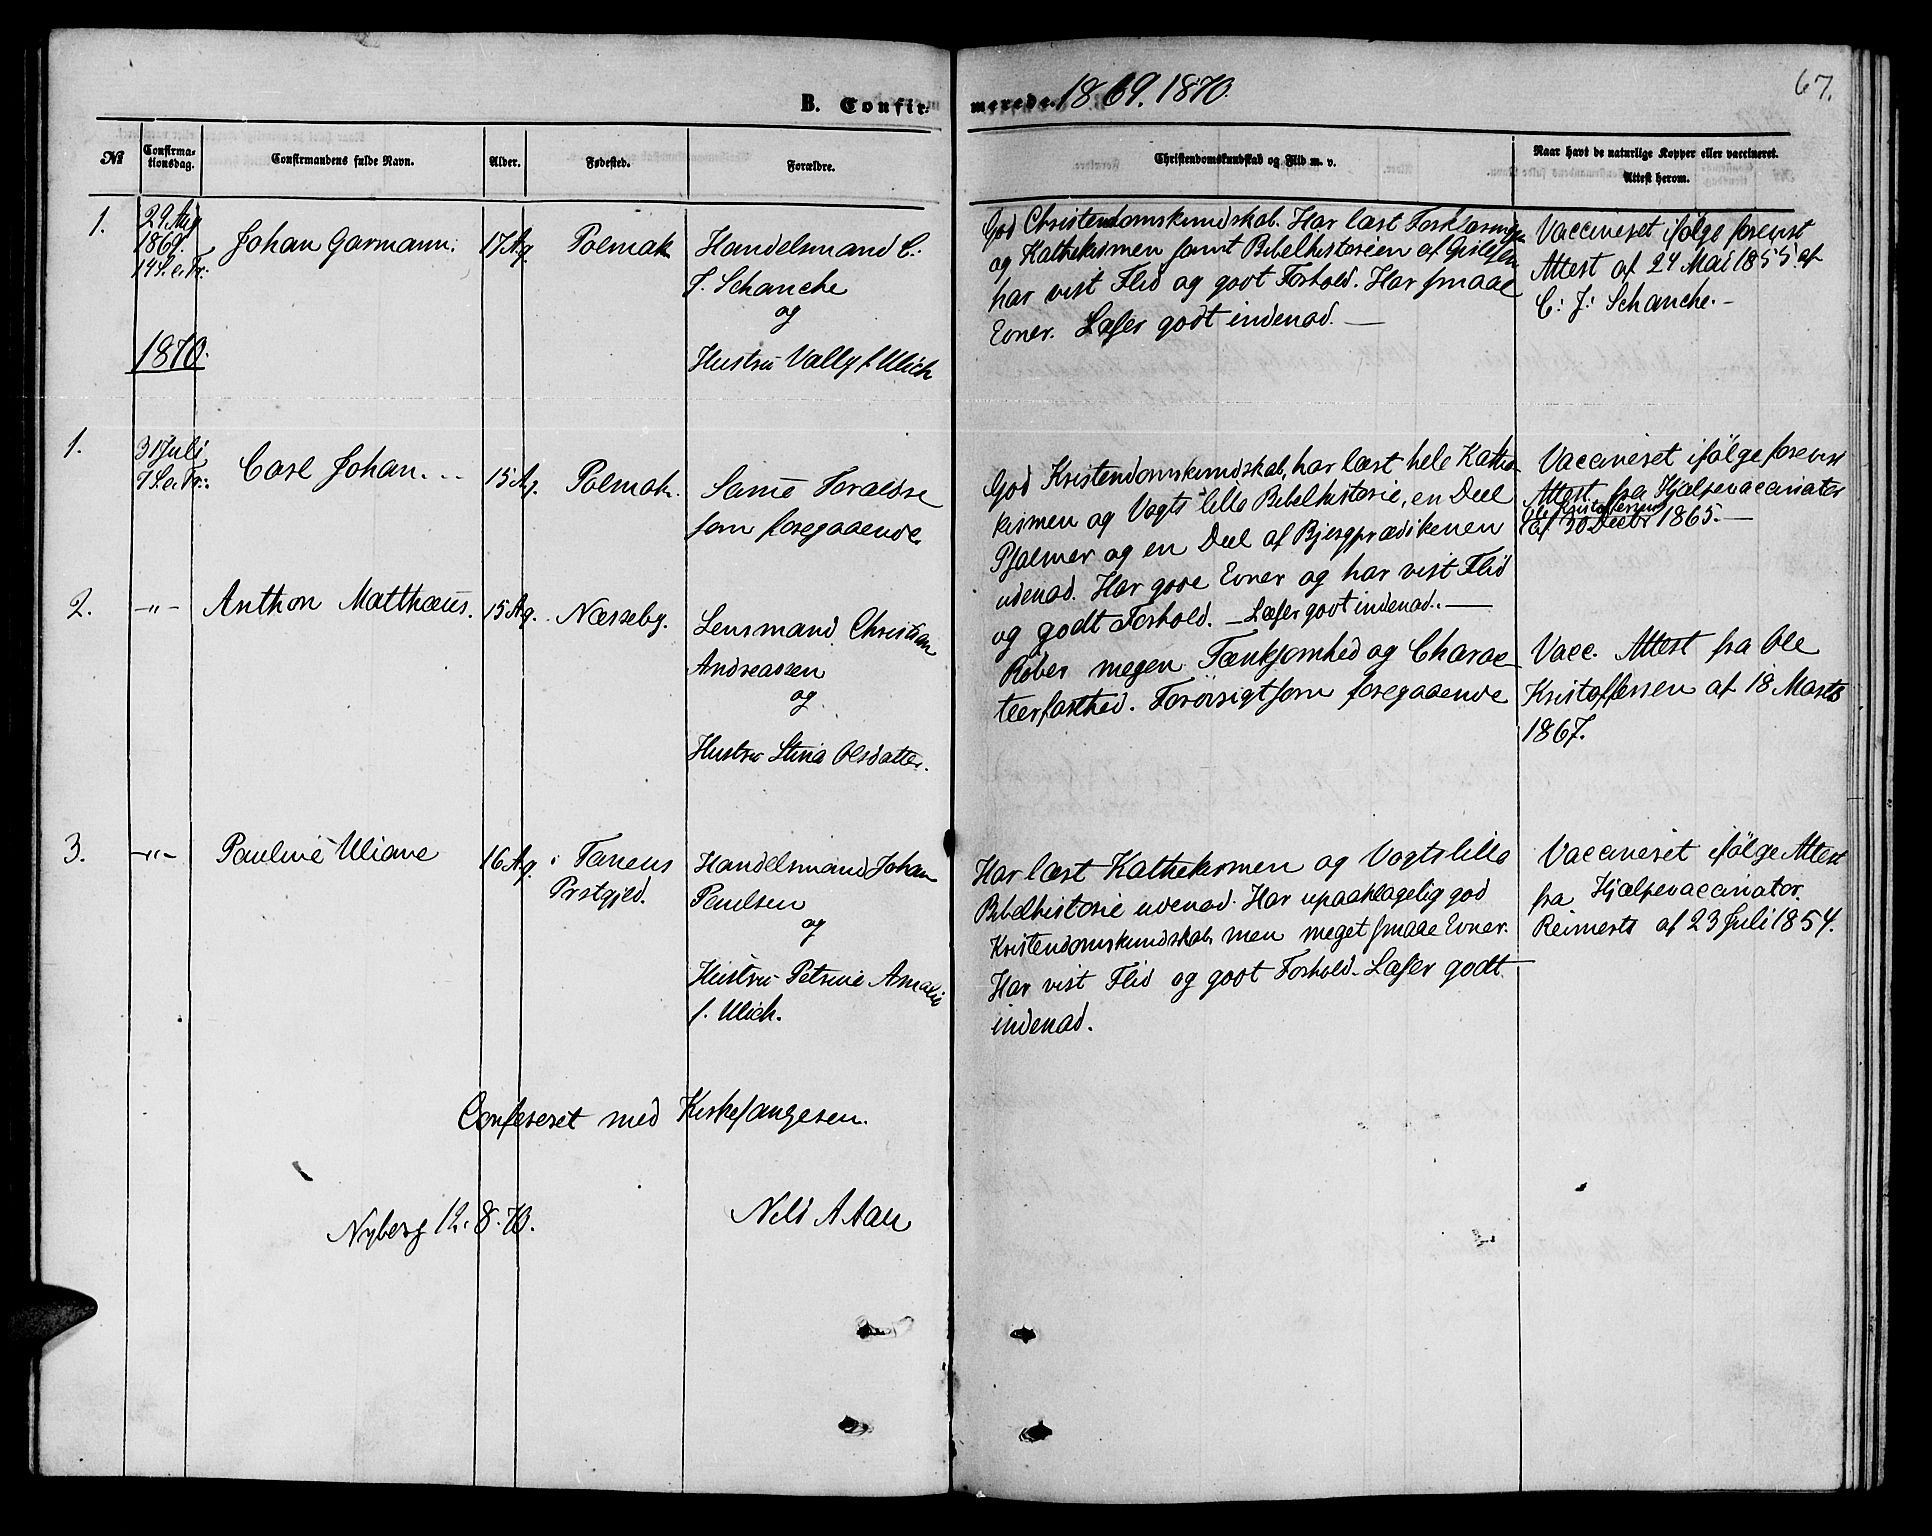 67.
B. Confirmerede. 1869. 1870.
No
Confirmationsdag.
Confirmandens fulde Navn.
Alder.
Fødested.
Forældre.
Christendomskundskab og Flid m. v.
Naar havt de naturlige Kopper eller vaccineret.
Attest herom.
1.
29 Aug
1869.
14 S. e. Tr.
Johan Garmann.
17 Ag.
Polmak
Handelsmand C.
J. Schanche
og
Hustru Vally f. Ulich
God Christendomskundskab. Har læst Forklaringen
og Kathekismen samt Bibelhistorien af
har vist Flid og godt Forhold. Har smaae
Evner. Læser godt indenad. —
Vaccineret ifølge forevist
Attest af 24 Mai 1855 af
C: J: Schanche. -
1870.
1.
31 Juli
7 S. e. Tr:
Carl Johan. --
15 Ag.
Polmak.
Samme Forældre
som foregaaende.
God Kristendomskundskab, har læst hele Kathe-
kismen og Vogts lille Bibelhistorie, en Deel
Psalmer og en Deel af Bjergprædikenen
udenad. Har gode Evner og har vist Flid
og godt Forhold. — Læser godt indenad. —
Vaccineret ifølge forevist
Attest fra Hjælpevaccinatør
Ole Kristoffersen
af 30 Decbr 1865. —
2.
-"-
Anthon Matthæus.
15 Ag.
Næsseby.
Lensmand Christian
Andreassen
og
Hustru Stina Olsdatter.
Røber megen Tænksomhed og Charac-
teerfasthed. Forøvrigt som foregaaende
Vacc. Attest fra Ole
Kristoffersen af 18 Marts
1867.
3.
-"-
Pauline Uliane
16 Ag.
i Tanens
Prstgjed.
Handelsmand Johan
Paulsen
og
Hustru Petrine Amalie
f. Ulich.
Har læst Kathekismen og Vogts lille
Bibelhistorie udenad. Har upaaklagelig god
Kristendomskundskab, men meget smaae Evner.
Har vist Flid og godt Forhold. Læser godt
indenad.
Vaccineret ifølge Attest
fra Hjælpevaccinatør
Reimerts af 23 Juli 1854.
Confereret med Kirkesangeren.
Nyberg 12. 8. 70.
Nils A Aall